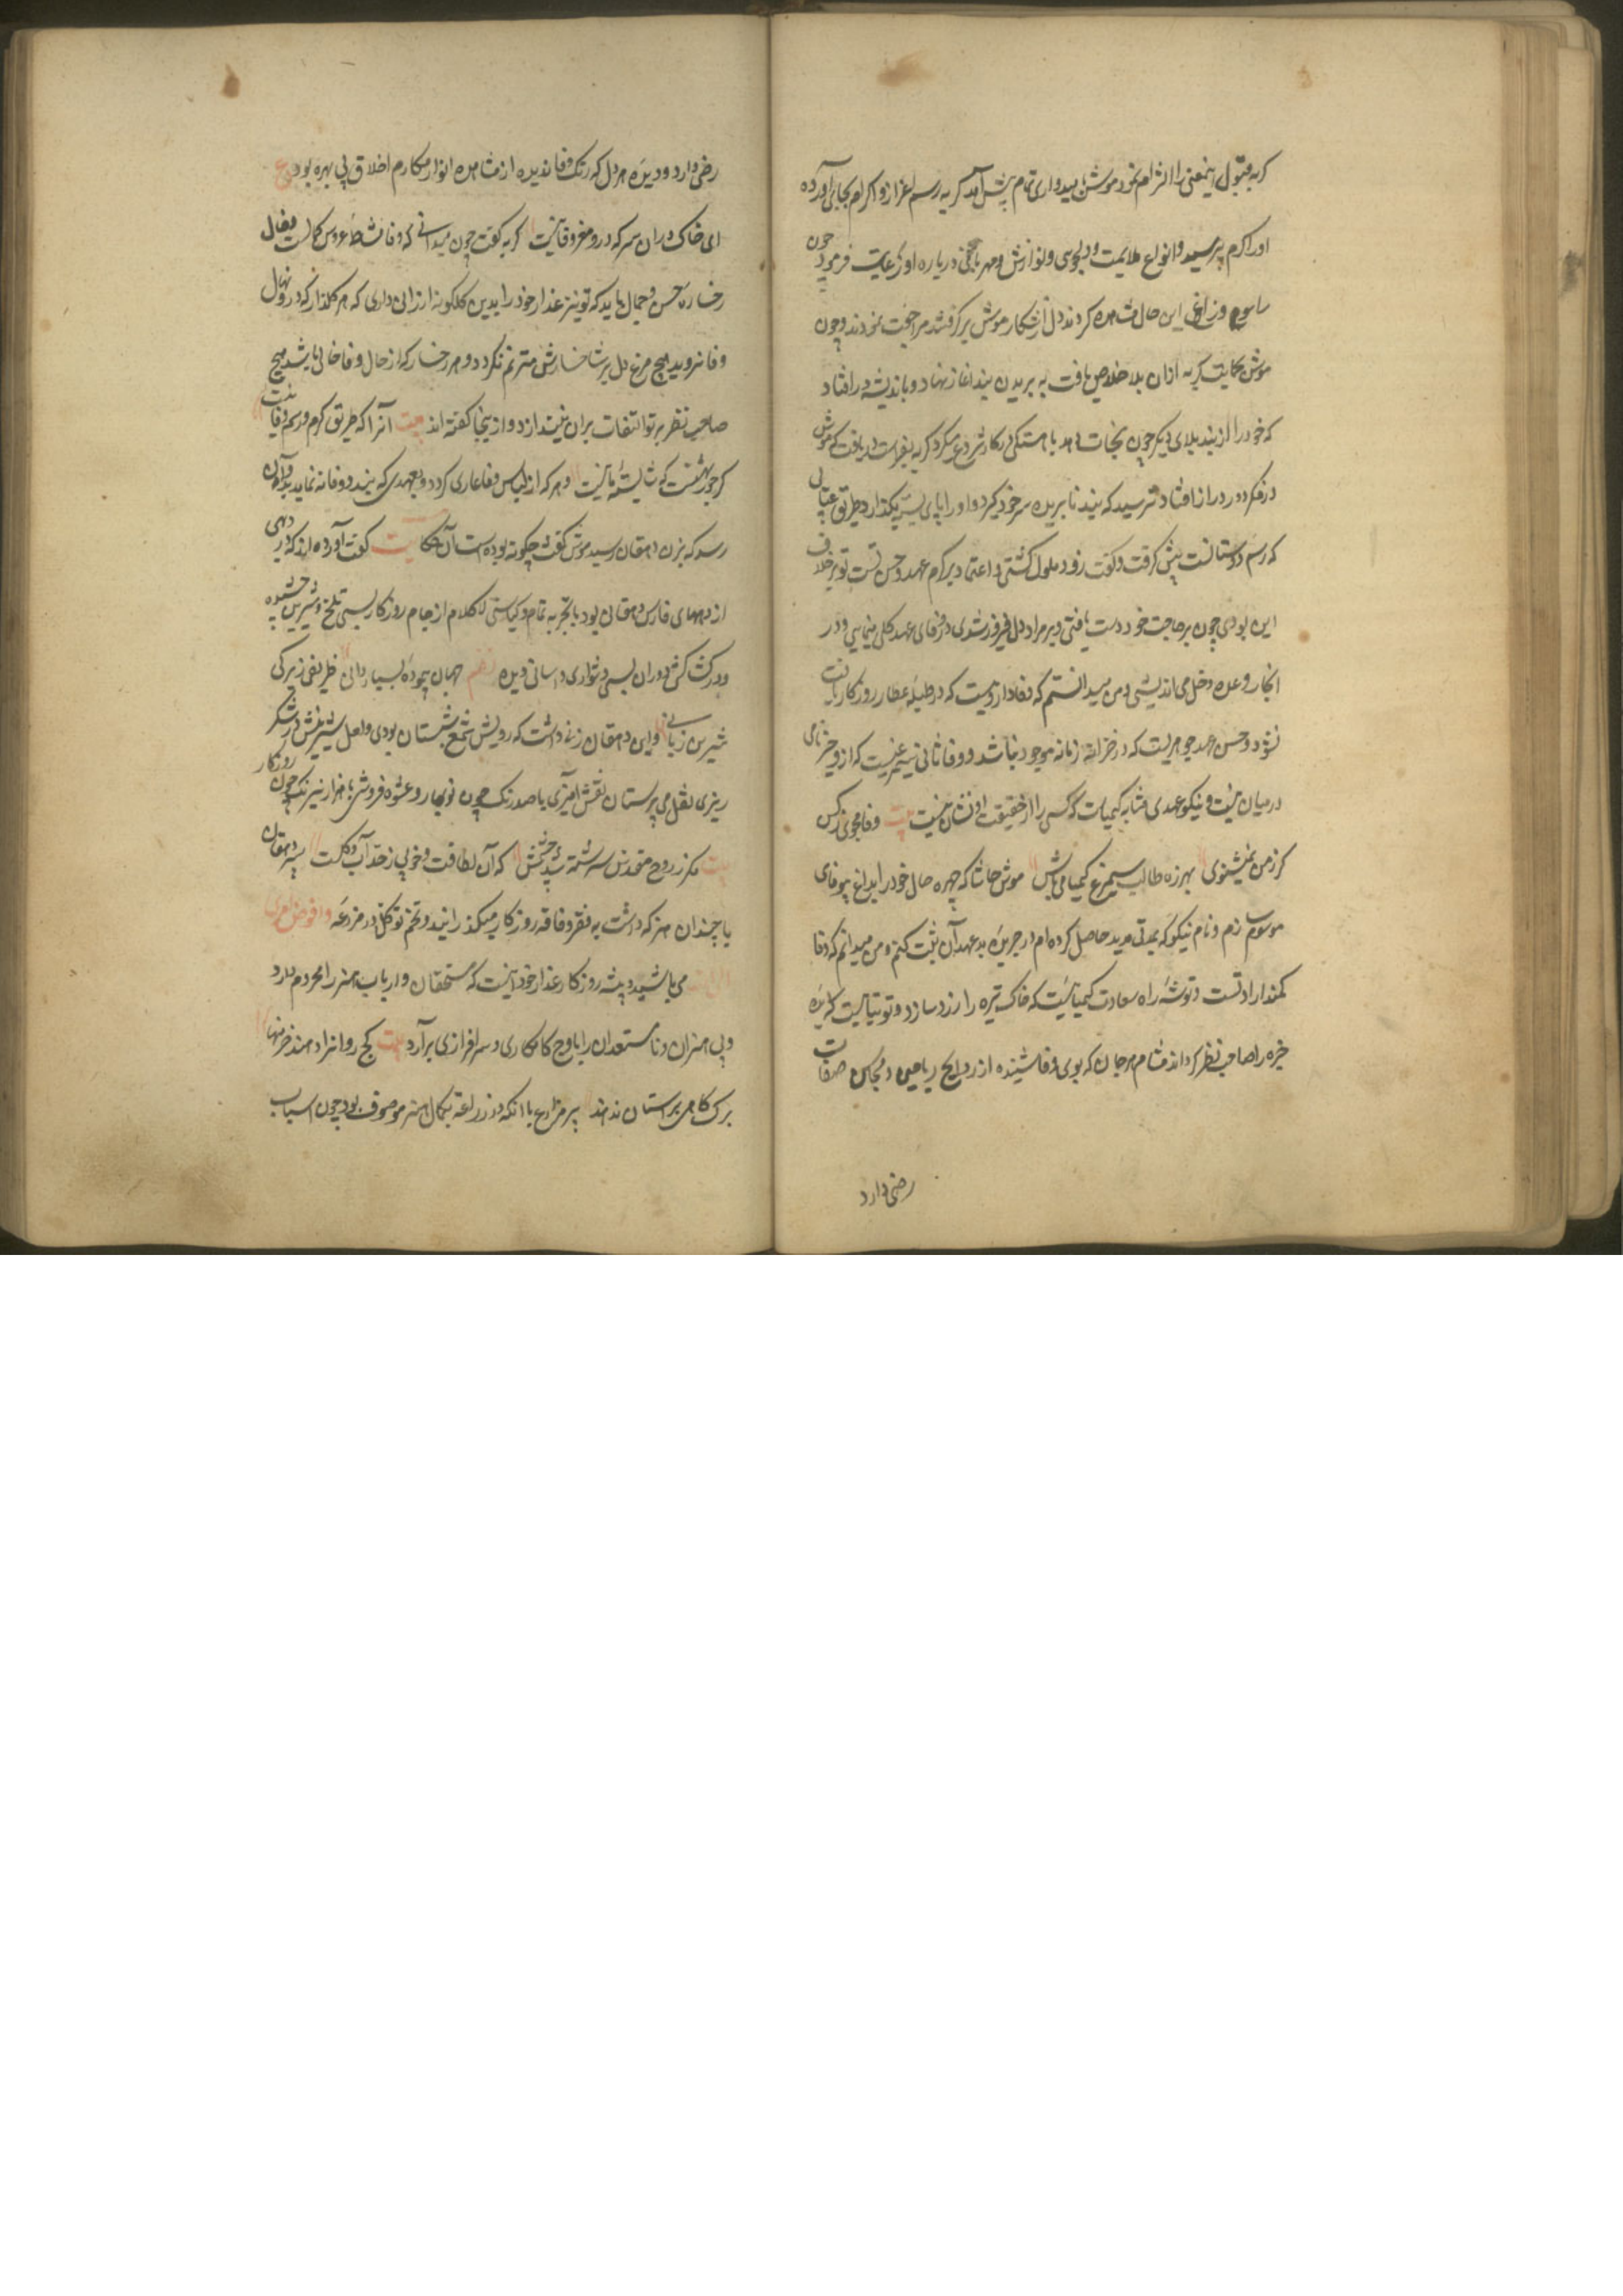 گربه قبول اینمعنی را التزام نمود موش بامیدواری تمام پیش آمد گربه رسم اعزاز و اکرام بجای آورده
او را گرم پرسید و انواع ملایمت و دلجوئی و نوازش و مهربانی درباره او رعایت فرمود چون
راسو و زاغ این حال مشاهده کردند دل از شکار موش برگرفتند مراجعت نمودند و چون
موش بحمایت گربه ازان بلا خلاص یافت به بریدن بند آغاز نهاد و باندیشه در افتاد
که خود را از بند بلای دیگر چون نجات دهد باهستگی در کار شروع میکرد گربه بفراست دریافت که موش
در فکر دور و دراز افتاد ترسید که بند نابریده سر خود گیرد و او را پای بسته بگذارد طریق عتابی
که رسم دوستانست پیش گرفت و گفت زود ملول گشتی و اعتماد بر کرم عهد و حسن تست تو برخلاف
این بودی چون بر حاجت خود دست یافتی و بر مراد دل فیروز شدی در وفای عهد کلی مینمایی و در
انجاز وعده دخل می اندیشی و من میدانستم که وفا داروییست که در طبله عطار روزگار یافت
نشود و حسن عهد جوهریست که در خزانه زمانه موجود نباشد و وفا ثانی سیمرغیست که ازو جز نامی
در میان نیست و نیکو عهدی بمثابه کیمیاست که کسی را از حقیقت او نشان نیست بیت وفا مجوی ز کس
گر ز من نمیشنوی بهرزه طالب سیمرغ و کیمیا می باش موش حاشا که چهره حال خود را بداغ بیوفائی
موسوم زنم و نام نیکو که بمدتی مدید حاصل کرده ام در جریده بدعهدان ثبت کنم و من میدانم که وفا
کمند ارادتست و توشه راه سعادت کیمیائیست که خاک تیره را زر سازد و توتیائیست که دیده
خیره را صاحب نظر گرداند مشام هر جان که بوی وفا نشنیده از روایح ریاحین و محاسن صفات
رضی دارد
رضی دارد و دیده هر دل که رنگ وفا ندیده از مشاهده انوار مکارم اخلاق بی بهره بود ع
ای خاک بران سر که درو مغز وفا نیست گربه گفت چون میدانی که وفا مشاطه عروس کمالست و خال
رخساره حسن و جمال باید که تو نیز عذار خود را بدین گلگونه ارزانی داری که هر گلذار که درو نهال
وفا نروید هیچ مرغ دل بر شاخسارش مترنم نگردد و هر رخسار که از خال وفا خالی باشد هیچ
صاحب نظر پرتو التفات بران نیندازد و از اینجا گفته اند بیت آنرا که طریق کرم و رسم وفا نیست
گر حور بهشتست که شایسته ما نیست و هر که از لباس وفا عاری گردد و بعهدی که بندد وفا ننماید بدو آن
رسد که بزن دهقان رسید موش گفت چگونه بوده است آن حکایت گفت آورده اند که در دهی
از دههای فارس دهقانی بود با تجربه تمام و کیاستی لاکلام از جام روزگار بسی تلخ و شیرین چشیده
و در گشاکش دوران بسی دشواری و آسانی دیده نظم جهان پیموده بسیار دانی ظریفی زیرکی
شیرین زبانی و این دهقان زنی داشت که رویش شمع شبستان بودی و لعل شیرینش در شکر
ریزی نقل می پرستان نقش آمیزی با صد رنگ چون نوبهار و عشوه فروشی با هزار نیرنگ چون روزگار
بیت مگر ز روح مقدس سرشته شد بدنش که آن لطافت و خوبی ز حد آب و گلست پیر دهقان
با چندان هنر که داشت به فقر و فاقه روزگار میگذرانید و تخم توکل در مزرعه وافوض امری
الی الله می پاشید و پیشه روزگار غدار خود اینست که مستحقان و ارباب هنر را محروم دارد
و بی هنران و نامستعدان را باوج کامگاری و سرافرازی برآرد بیت کج روانرا دهند خرمنها
برگ کاهی براستان ندهند پیر مزارع با آنکه در زراعت بکمال هنر موصوف بود چون اسباب